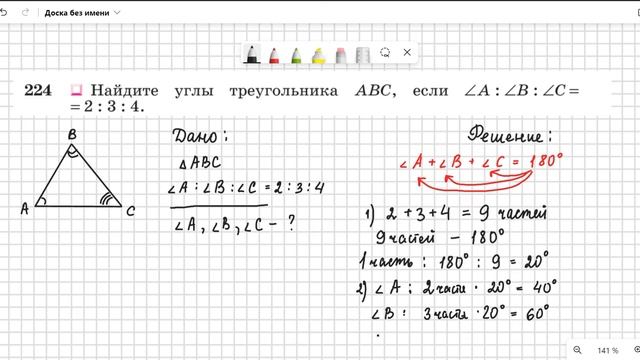 Доска без имени
224 Найдите углы треугольника ABC, если ∠A : ∠B : ∠C =
= 2 : 3 : 4.
B
A
C
Дано:
△ABC
∠A : ∠B : ∠C = 2 : 3 : 4
∠A, ∠B, ∠C – ?
Решение:
∠A + ∠B + ∠C = 180°
1) 2 + 3 + 4 = 9 частей
9 частей – 180°
1 часть : 180° : 9 = 20°
2) ∠A : 2 части · 20° = 40°
∠B : 3 части · 20° = 60°
141 %